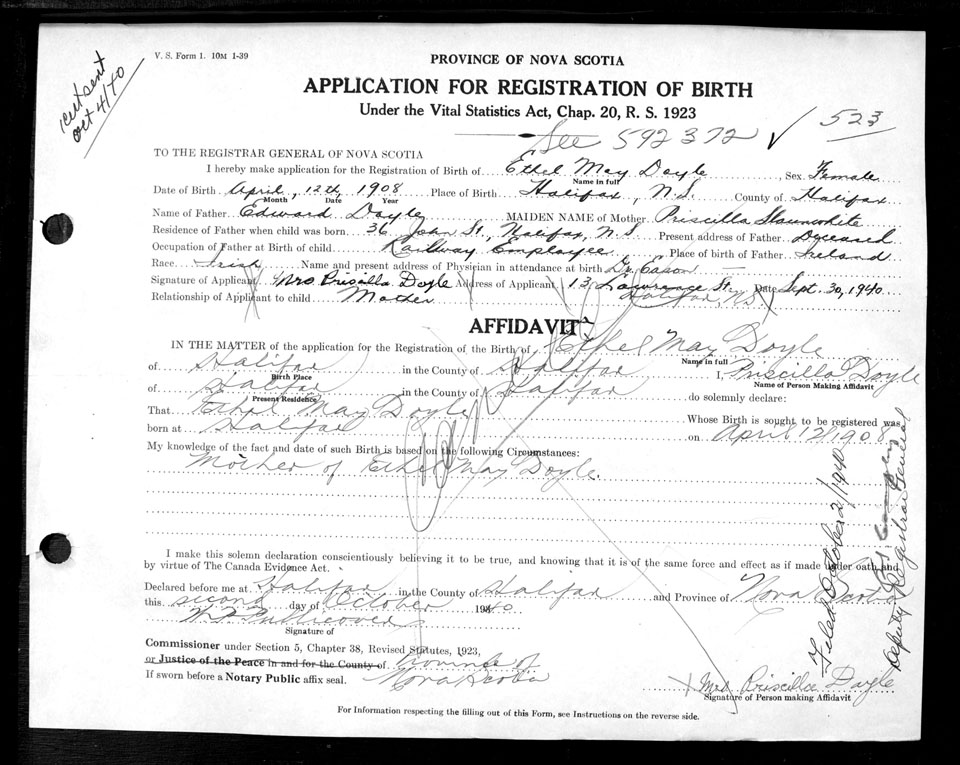 V. S. Form 1. 10M 1-39
cert sent
Oct 4/40
PROVINCE OF NOVA SCOTIA
APPLICATION FOR REGISTRATION OF BIRTH
Under the Vital Statistics Act, Chap. 20, R. S. 1923
See 592372 ✓ 523
TO THE REGISTRAR GENERAL OF NOVA SCOTIA
I hereby make application for the Registration of Birth of Ethel May Doyle Sex Female
Name in full
Date of Birth April, 12th, 1908 Place of Birth Halifax, N.S. County of Halifax
Month Date Year
Name of Father Edward Doyle MAIDEN NAME of Mother Priscilla Slaunwhite
Residence of Father when child was born 36 St., Halifax, N.S. Present address of Father Deceased
Occupation of Father at Birth of child Railway Employee Place of birth of Father Ireland
Race Irish Name and present address of Physician in attendance at birth Dr.
Signature of Applicant Mrs Priscilla Doyle Address of Applicant 13 Lawrence St., Date Sept. 30, 1940
Halifax, N.S.
Relationship of Applicant to child Mother
AFFIDAVIT
IN THE MATTER of the application for the Registration of the Birth of Ethel May Doyle
Name in full
of Halifax in the County of Halifax I, Priscilla Doyle
Birth Place Name of Person Making Affidavit
of Halifax in the County of Halifax do solemnly declare:
Present Residence
That Ethel May Doyle Whose Birth is sought to be registered was
born at Halifax on April 12/1908
My knowledge of the fact and date of such Birth is based on the following Circumstances:
Mother of Ethel May Doyle.
I make this solemn declaration conscientiously believing it to be true, and knowing that it is of the same force and effect as if made under oath and
by virtue of The Canada Evidence Act.
Declared before me at Halifax in the County of Halifax and Province of Nova Scotia
this second day of October 1940
Signature of
Commissioner under Section 5, Chapter 38, Revised Statutes, 1923,
or Justice of the Peace in and for the County of Province of
If sworn before a Notary Public affix seal. Nova Scotia
Mrs Priscilla Doyle
Signature of Person making Affidavit
For Information respecting the filling out of this Form, see Instructions on the reverse side.
Filed October 2/1940
Deputy Registrar General